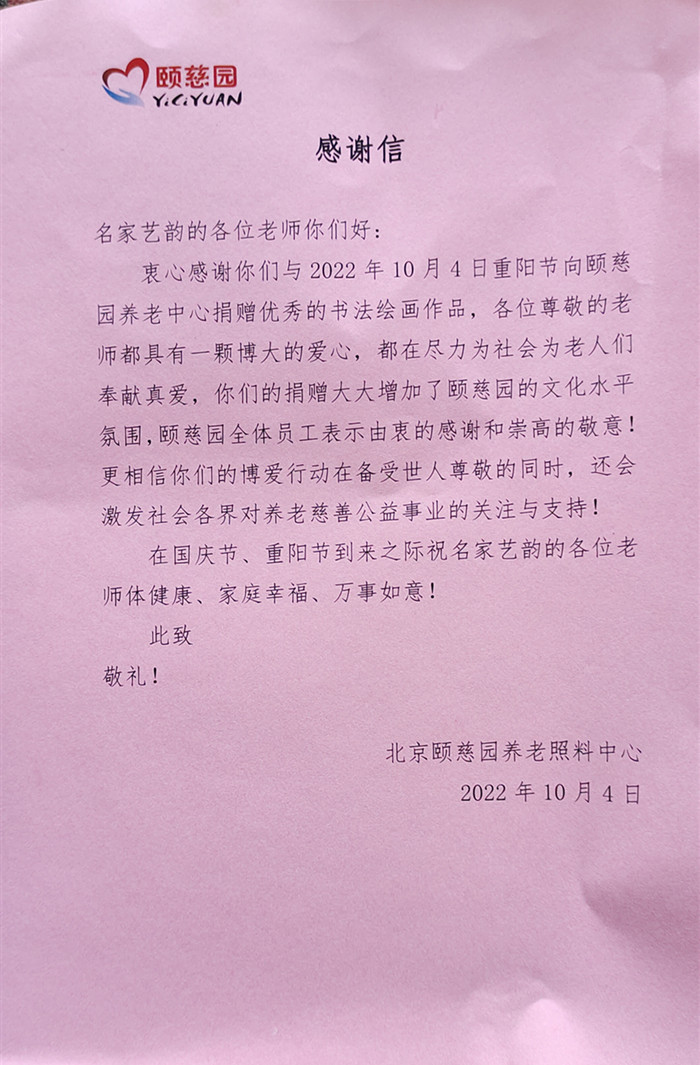 颐慈园
YiCiYUAN
感谢信
名家艺韵的各位老师你们好：
衷心感谢你们与 2022 年 10 月 4 日重阳节向颐慈
园养老中心捐赠优秀的书法绘画作品，各位尊敬的老
师都具有一颗博大的爱心，都在尽力为社会为老人们
奉献真爱，你们的捐赠大大增加了颐慈园的文化水平
氛围,颐慈园全体员工表示由衷的感谢和崇高的敬意！
更相信你们的博爱行动在备受世人尊敬的同时，还会
激发社会各界对养老慈善公益事业的关注与支持！
在国庆节、重阳节到来之际祝名家艺韵的各位老
师体健康、家庭幸福、万事如意！
此致
敬礼！
北京颐慈园养老照料中心
2022 年 10 月 4 日